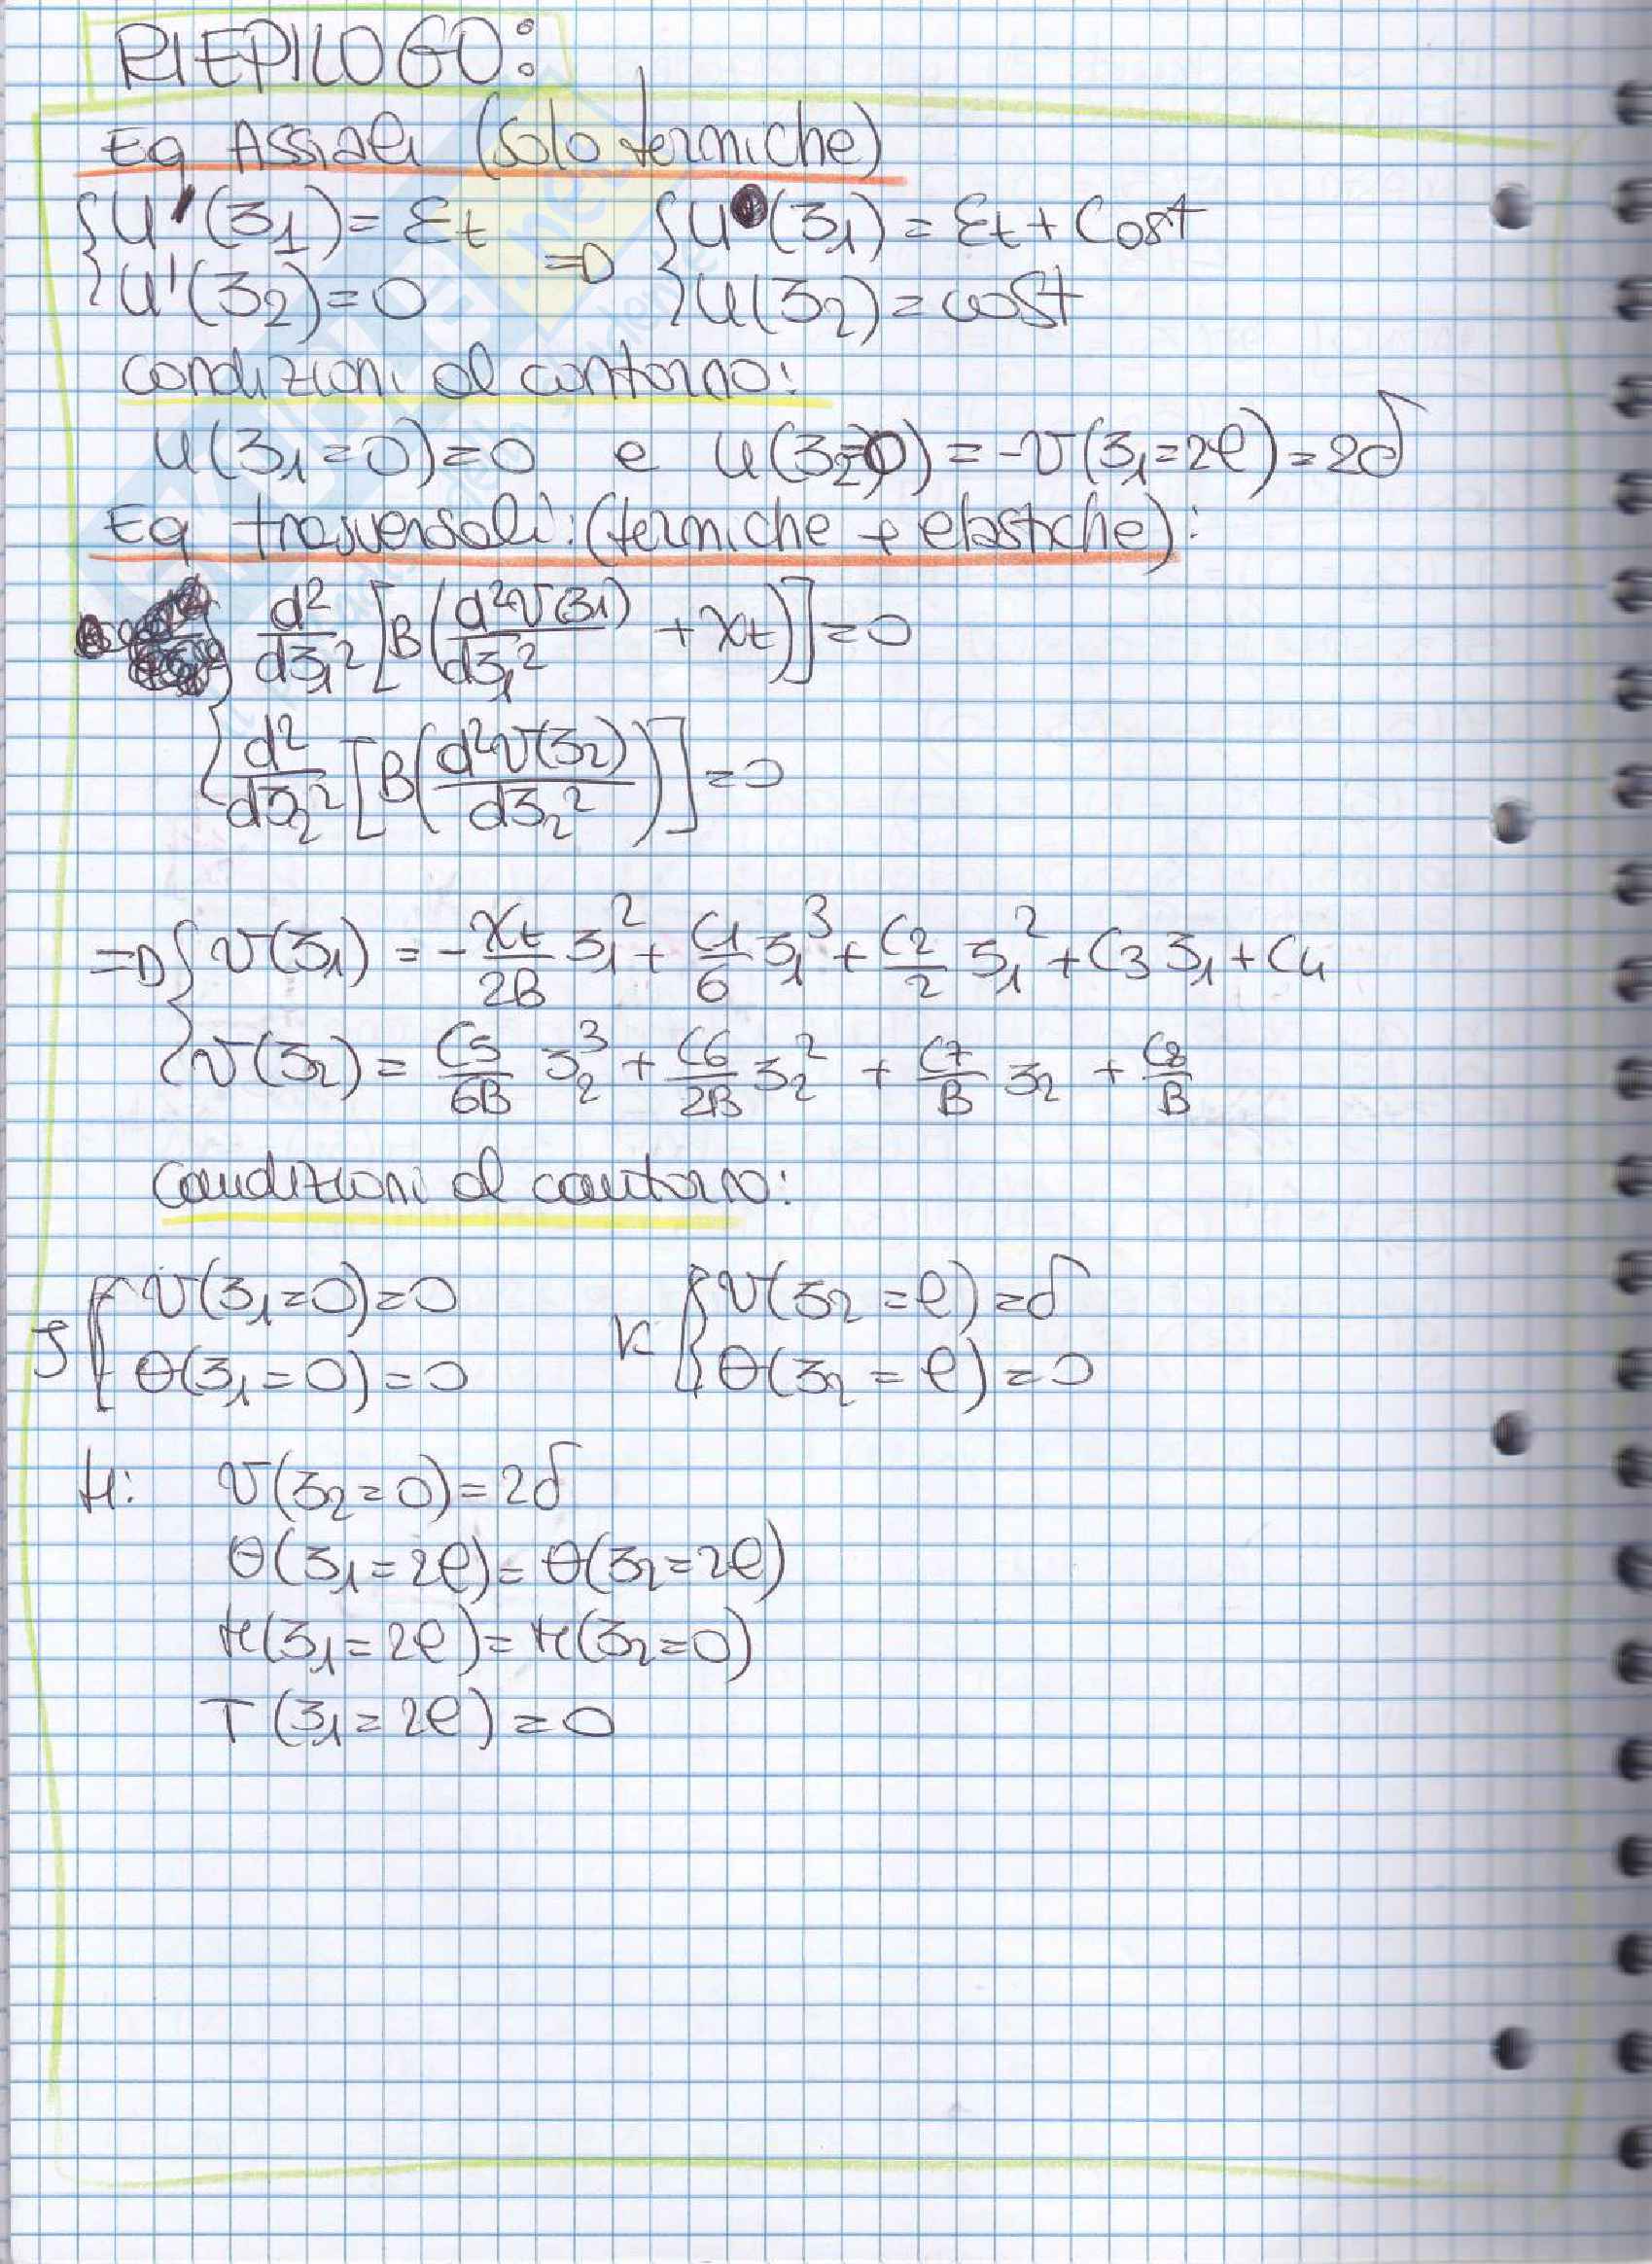 RIEPILOGO:
Eq Assiali (solo termiche)
{ u'(z₁) = εt => { u(z₁) = εt + Cost
{ u'(z₂) = 0 { u(z₂) = cost
condizioni al contorno:
u(z₁=0)=0 e u(z₂=0) = -v(z₁=2l) = 2δ
Eq trasversali: (termiche + elastiche):
{ d²/dz₁² [B(d²v(z₁)/dz₁² + χt)] = 0
{ d²/dz₂² [B(d²v(z₂)/dz₂²)] = 0
=> { v(z₁) = -χt/2B z₁² + C1/6 z₁³ + C2/2 z₁² + C3 z₁ + C4
{ v(z₂) = C5/6B z₂³ + C6/2B z₂² + C7/B z₂ + C8/B
Condizioni al contorno:
J { v(z₁=0)=0 K { v(z₂=l)=δ
{ θ(z₁=0)=0 { θ(z₂=l)=0
H: v(z₂=0)=2δ
θ(z₁=2l)=θ(z₂=2l)
M(z₁=2l)=M(z₂=0)
T(z₁=2l)=0